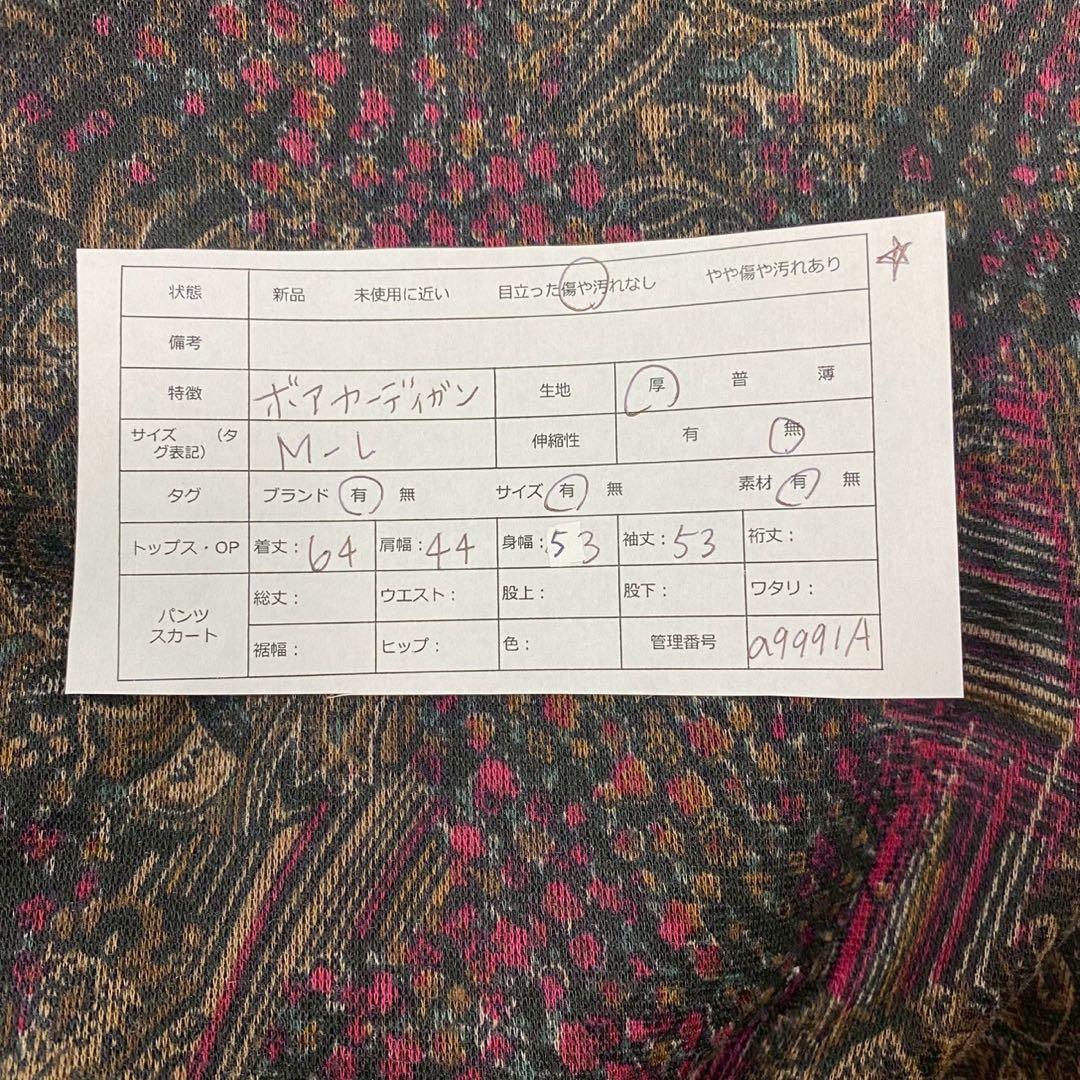 状態 新品 未使用に近い 目立った傷や汚れなし やや傷や汚れあり
備考
特徴 ボアカーディガン 生地 厚 普 薄
サイズ (タグ表記) M-L 伸縮性 有 無
タグ ブランド 有 無 サイズ 有 無 素材 有 無
トップス・OP 着丈:64 肩幅:44 身幅:53 袖丈:53 裄丈:
パンツ スカート 総丈: ウエスト: 股上: 股下: ワタリ:
裾幅: ヒップ: 色: 管理番号 a9991A